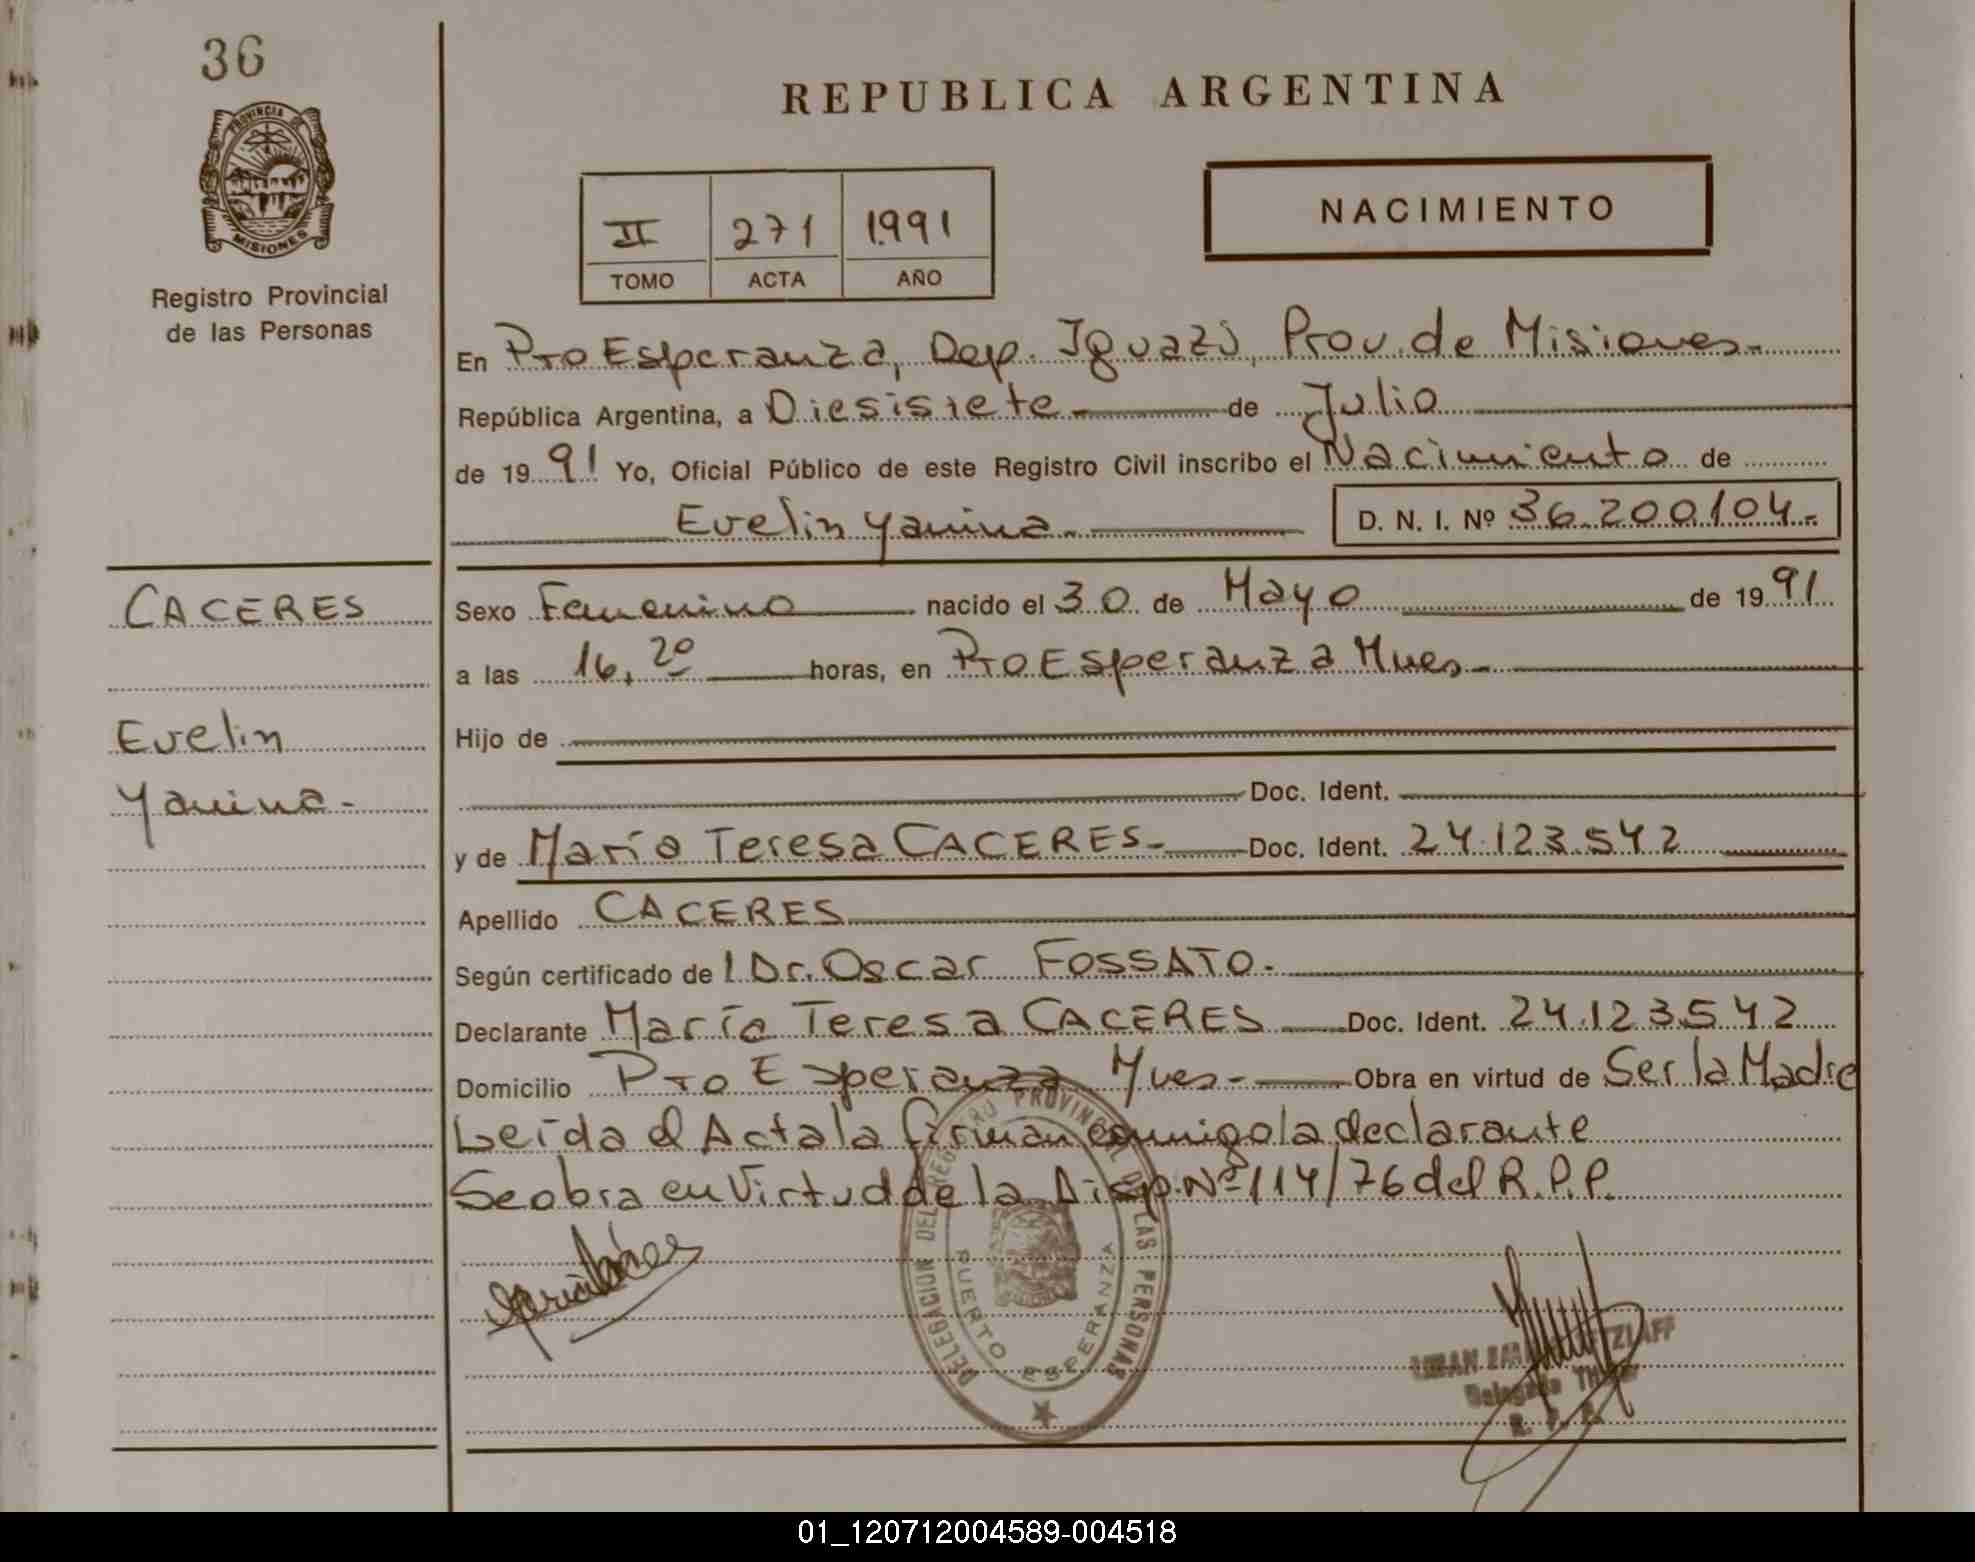 36
PROVINCIA DE
MISIONES
Registro Provincial
de las Personas
REPUBLICA ARGENTINA
II 271 1991
TOMO ACTA AÑO
NACIMIENTO
En Pto Esperanza, Dep. Iguazú, Prov. de Misiones.-
República Argentina, a Diesisiete de Julio
de 1991 Yo, Oficial Público de este Registro Civil inscribo el Nacimiento de
Evelin Yanina.- D. N. I. Nº 36.200.104.-
CACERES
Evelin
Yanina.-
Sexo Femenino nacido el 30 de Mayo de 1991
a las 16,20 horas, en Pto Esperanza Mnes.-
Hijo de
Doc. Ident.
y de María Teresa CACERES.- Doc. Ident. 24.123.542
Apellido CACERES
Según certificado de l Dr. Oscar FOSSATO.-
Declarante María Teresa CACERES Doc. Ident. 24.123.542
Domicilio Pto Esperanza Mnes.- Obra en virtud de Ser la Madre
Leída el Acta la firman conmigo la declarante
Se obra en Virtud de la Disp. Nº 114/76 del R.P.P.
DELEGACION DEL REGISTRO PROVINCIAL DE LAS PERSONAS
PUERTO ESPERANZA
Delegado
R. P. P.
01_120712004589-004518